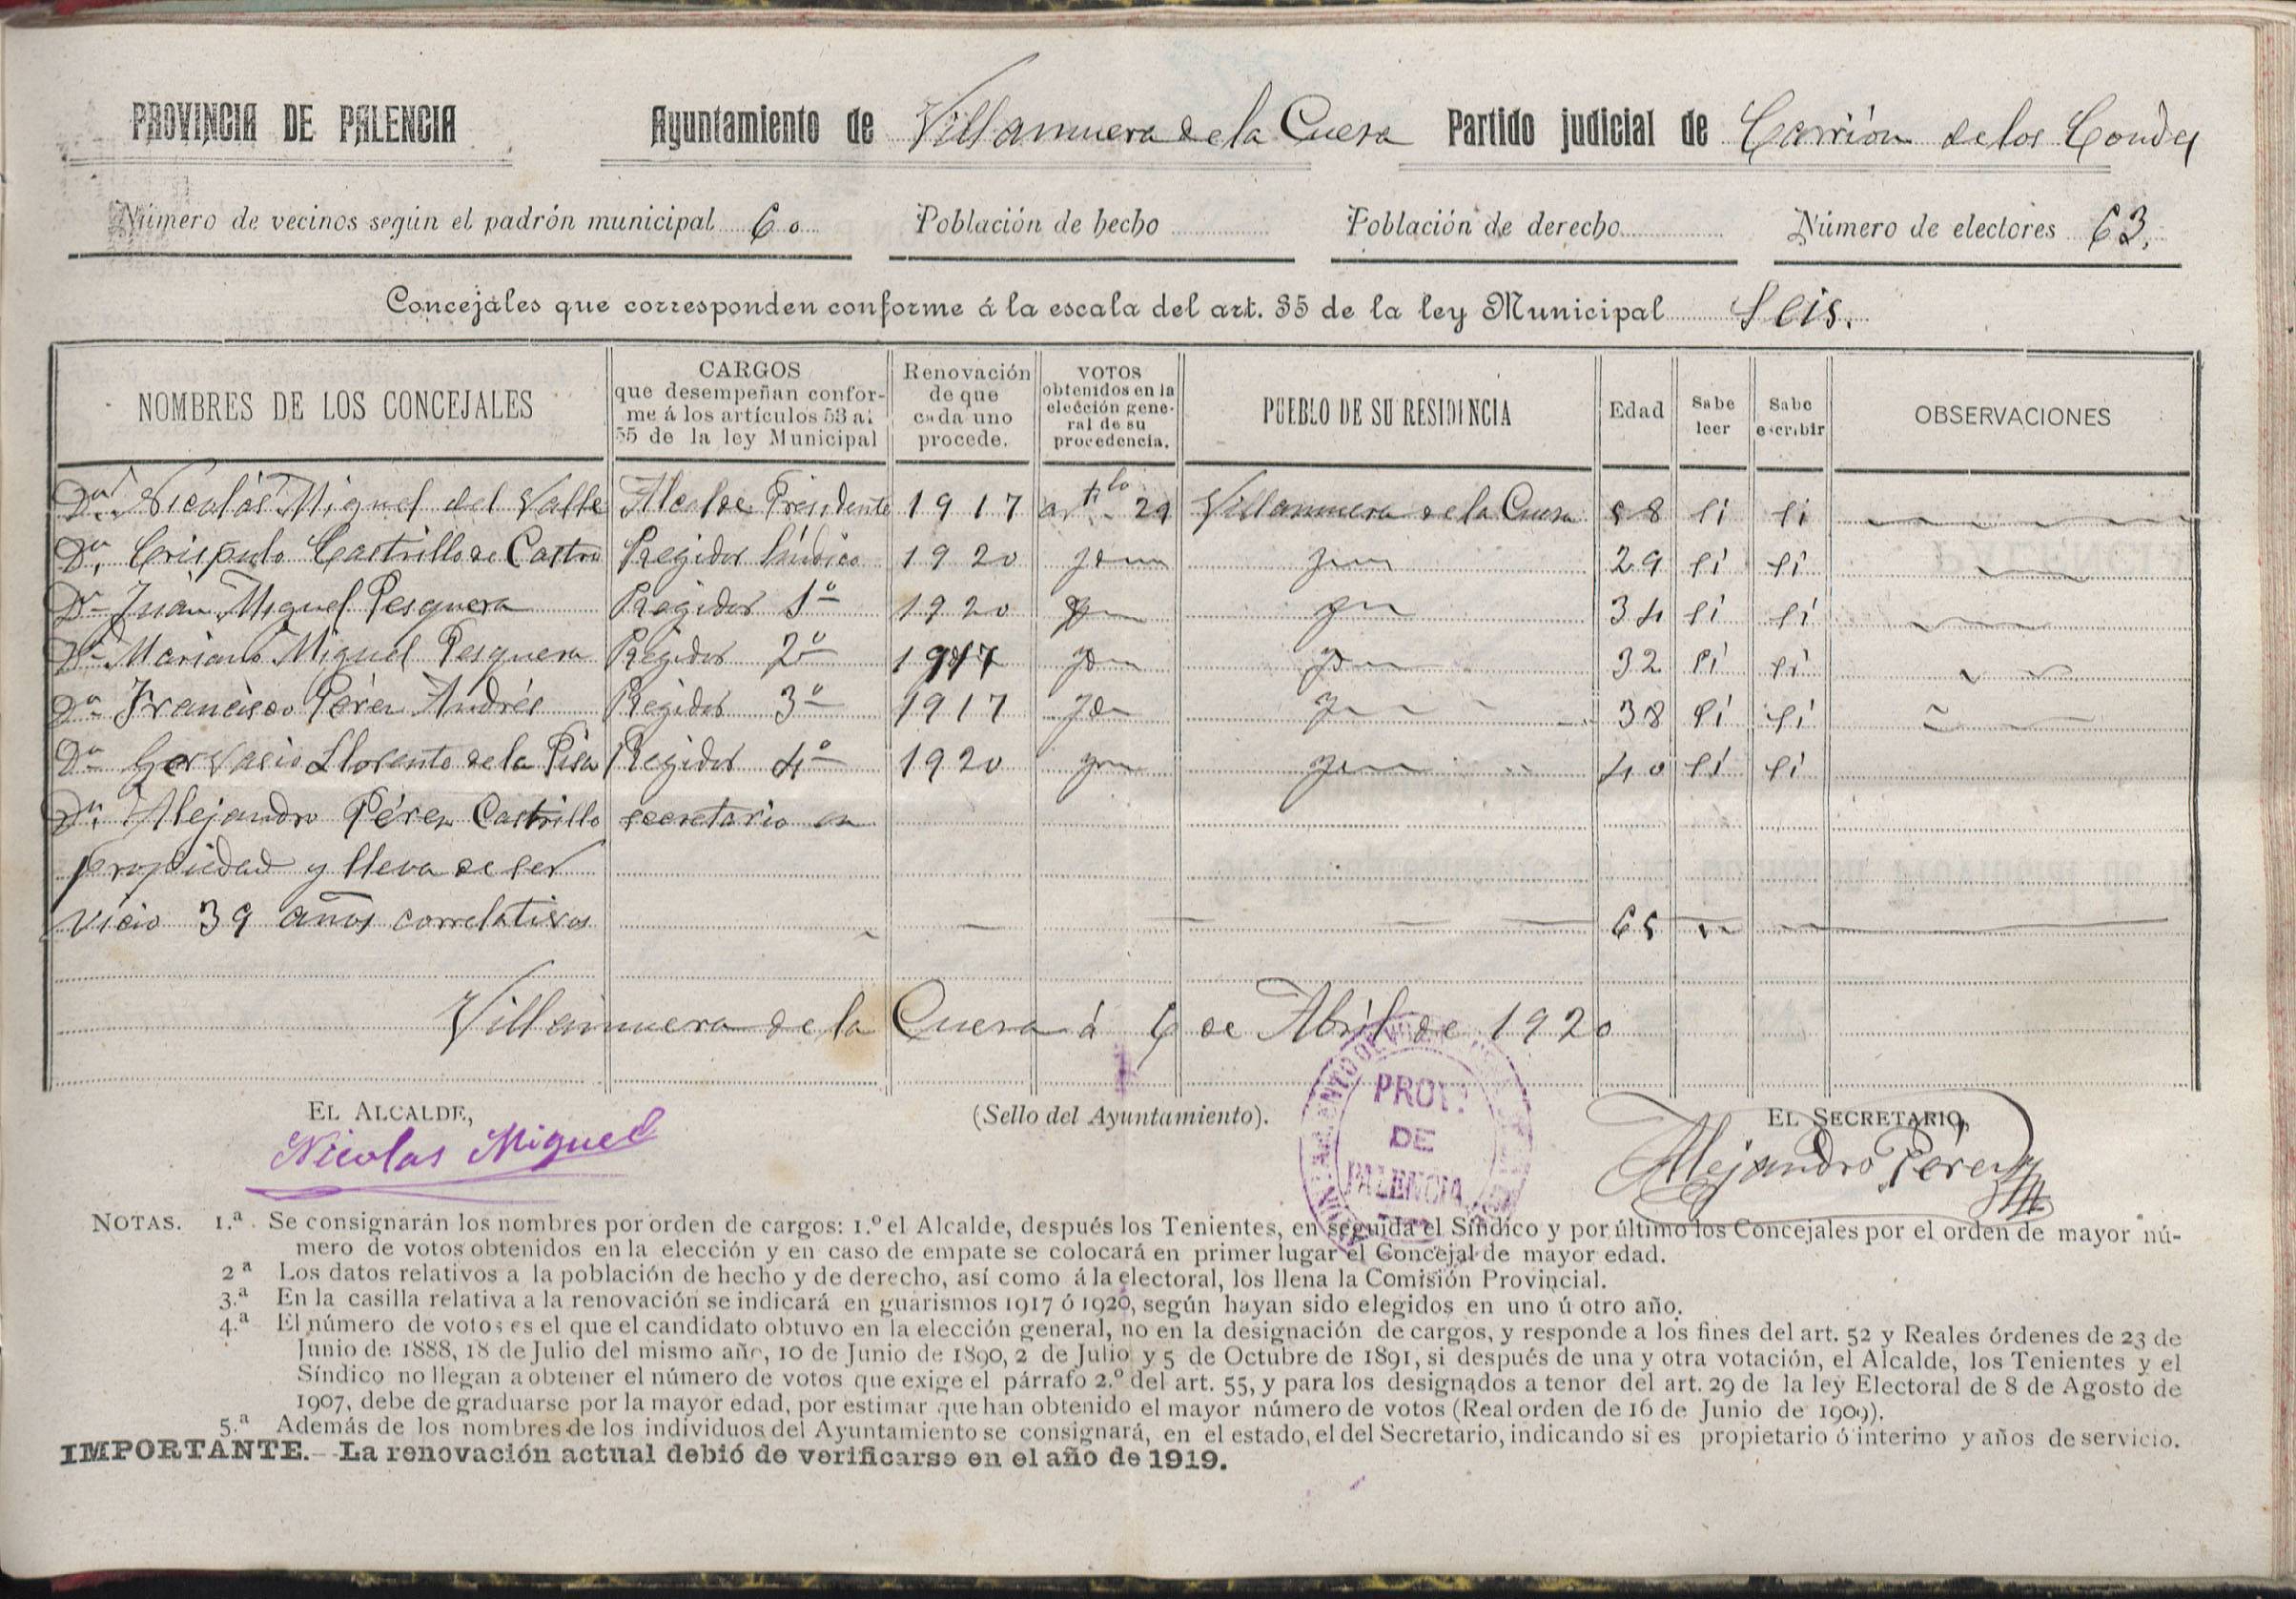 PROVINCIA DE PALENCIA Ayuntamiento de Villanueva de la Cueza Partido judicial de Carrión de los Condes
Número de vecinos según el padrón municipal 60 Población de hecho Población de derecho Número de electores 63.
Concejales que corresponden conforme á la escala del art. 35 de la ley Municipal Seis.
NOMBRES DE LOS CONCEJALES
CARGOS
que desempeñan confor-
me á los artículos 53 al
55 de la ley Municipal
Renovación
de que
cada uno
procede.
VOTOS
obtenidos en la
elección gene-
ral de su
procedencia.
PUEBLO DE SU RESIDENCIA
Edad
Sabe
leer
Sabe
escribir
OBSERVACIONES
Dn. Nicolás Miguel del Valle Alcalde Presidente 1917 artlo 29 Villanueva de la Cueza 58 si si
Dn. Crispulo Castrillo de Castro Regidor Síndico 1920 Idem Idem 29 si si
Dn Juan Miguel Pesquera Regidor 1º 1920 Idem Idem 34 si si
Dn Mariano Miguel Pesquera Regidor 2º 1917 Idem Idem 32 si si
Dn Francisco Pérez Andrés Regidor 3º 1917 Idem Idem 38 si si
Dn Gervasio Llorente de la Pisa Regidor 4º 1920 Idem Idem 40 si si
Dn. Alejandro Pérez Castrillo secretario en
propiedad y lleva de ser
vicio 39 años correlativos 65
Villanueva de la Cueza á 6 de Abril de 1920
EL ALCALDE, (Sello del Ayuntamiento). EL SECRETARIO,
Nicolas Miguel
Alejandro Pérez
AYUNTAMIENTO DE
PROV.ª
DE
PALENCIA
NOTAS. 1.ª Se consignarán los nombres por orden de cargos: 1.º el Alcalde, después los Tenientes, en seguida el Síndico y por último los Concejales por el orden de mayor nú-
mero de votos obtenidos en la elección y en caso de empate se colocará en primer lugar el Concejal de mayor edad.
2ª Los datos relativos a la población de hecho y de derecho, así como á la electoral, los llena la Comisión Provincial.
3.ª En la casilla relativa a la renovación se indicará en guarismos 1917 ó 1920, según hayan sido elegidos en uno ú otro año.
4.ª El número de votos es el que el candidato obtuvo en la elección general, no en la designación de cargos, y responde a los fines del art. 52 y Reales órdenes de 23 de
Junio de 1888, 18 de Julio del mismo año, 10 de Junio de 1890, 2 de Julio y 5 de Octubre de 1891, si después de una y otra votación, el Alcalde, los Tenientes y el
Síndico no llegan a obtener el número de votos que exige el párrafo 2.º del art. 55, y para los designados a tenor del art. 29 de la ley Electoral de 8 de Agosto de
1907, debe de graduarse por la mayor edad, por estimar que han obtenido el mayor número de votos (Real orden de 16 de Junio de 1909).
5.ª Además de los nombres de los individuos del Ayuntamiento se consignará, en el estado, el del Secretario, indicando si es propietario ó interino y años de servicio.
IMPORTANTE.—La renovación actual debió de verificarse en el año de 1919.